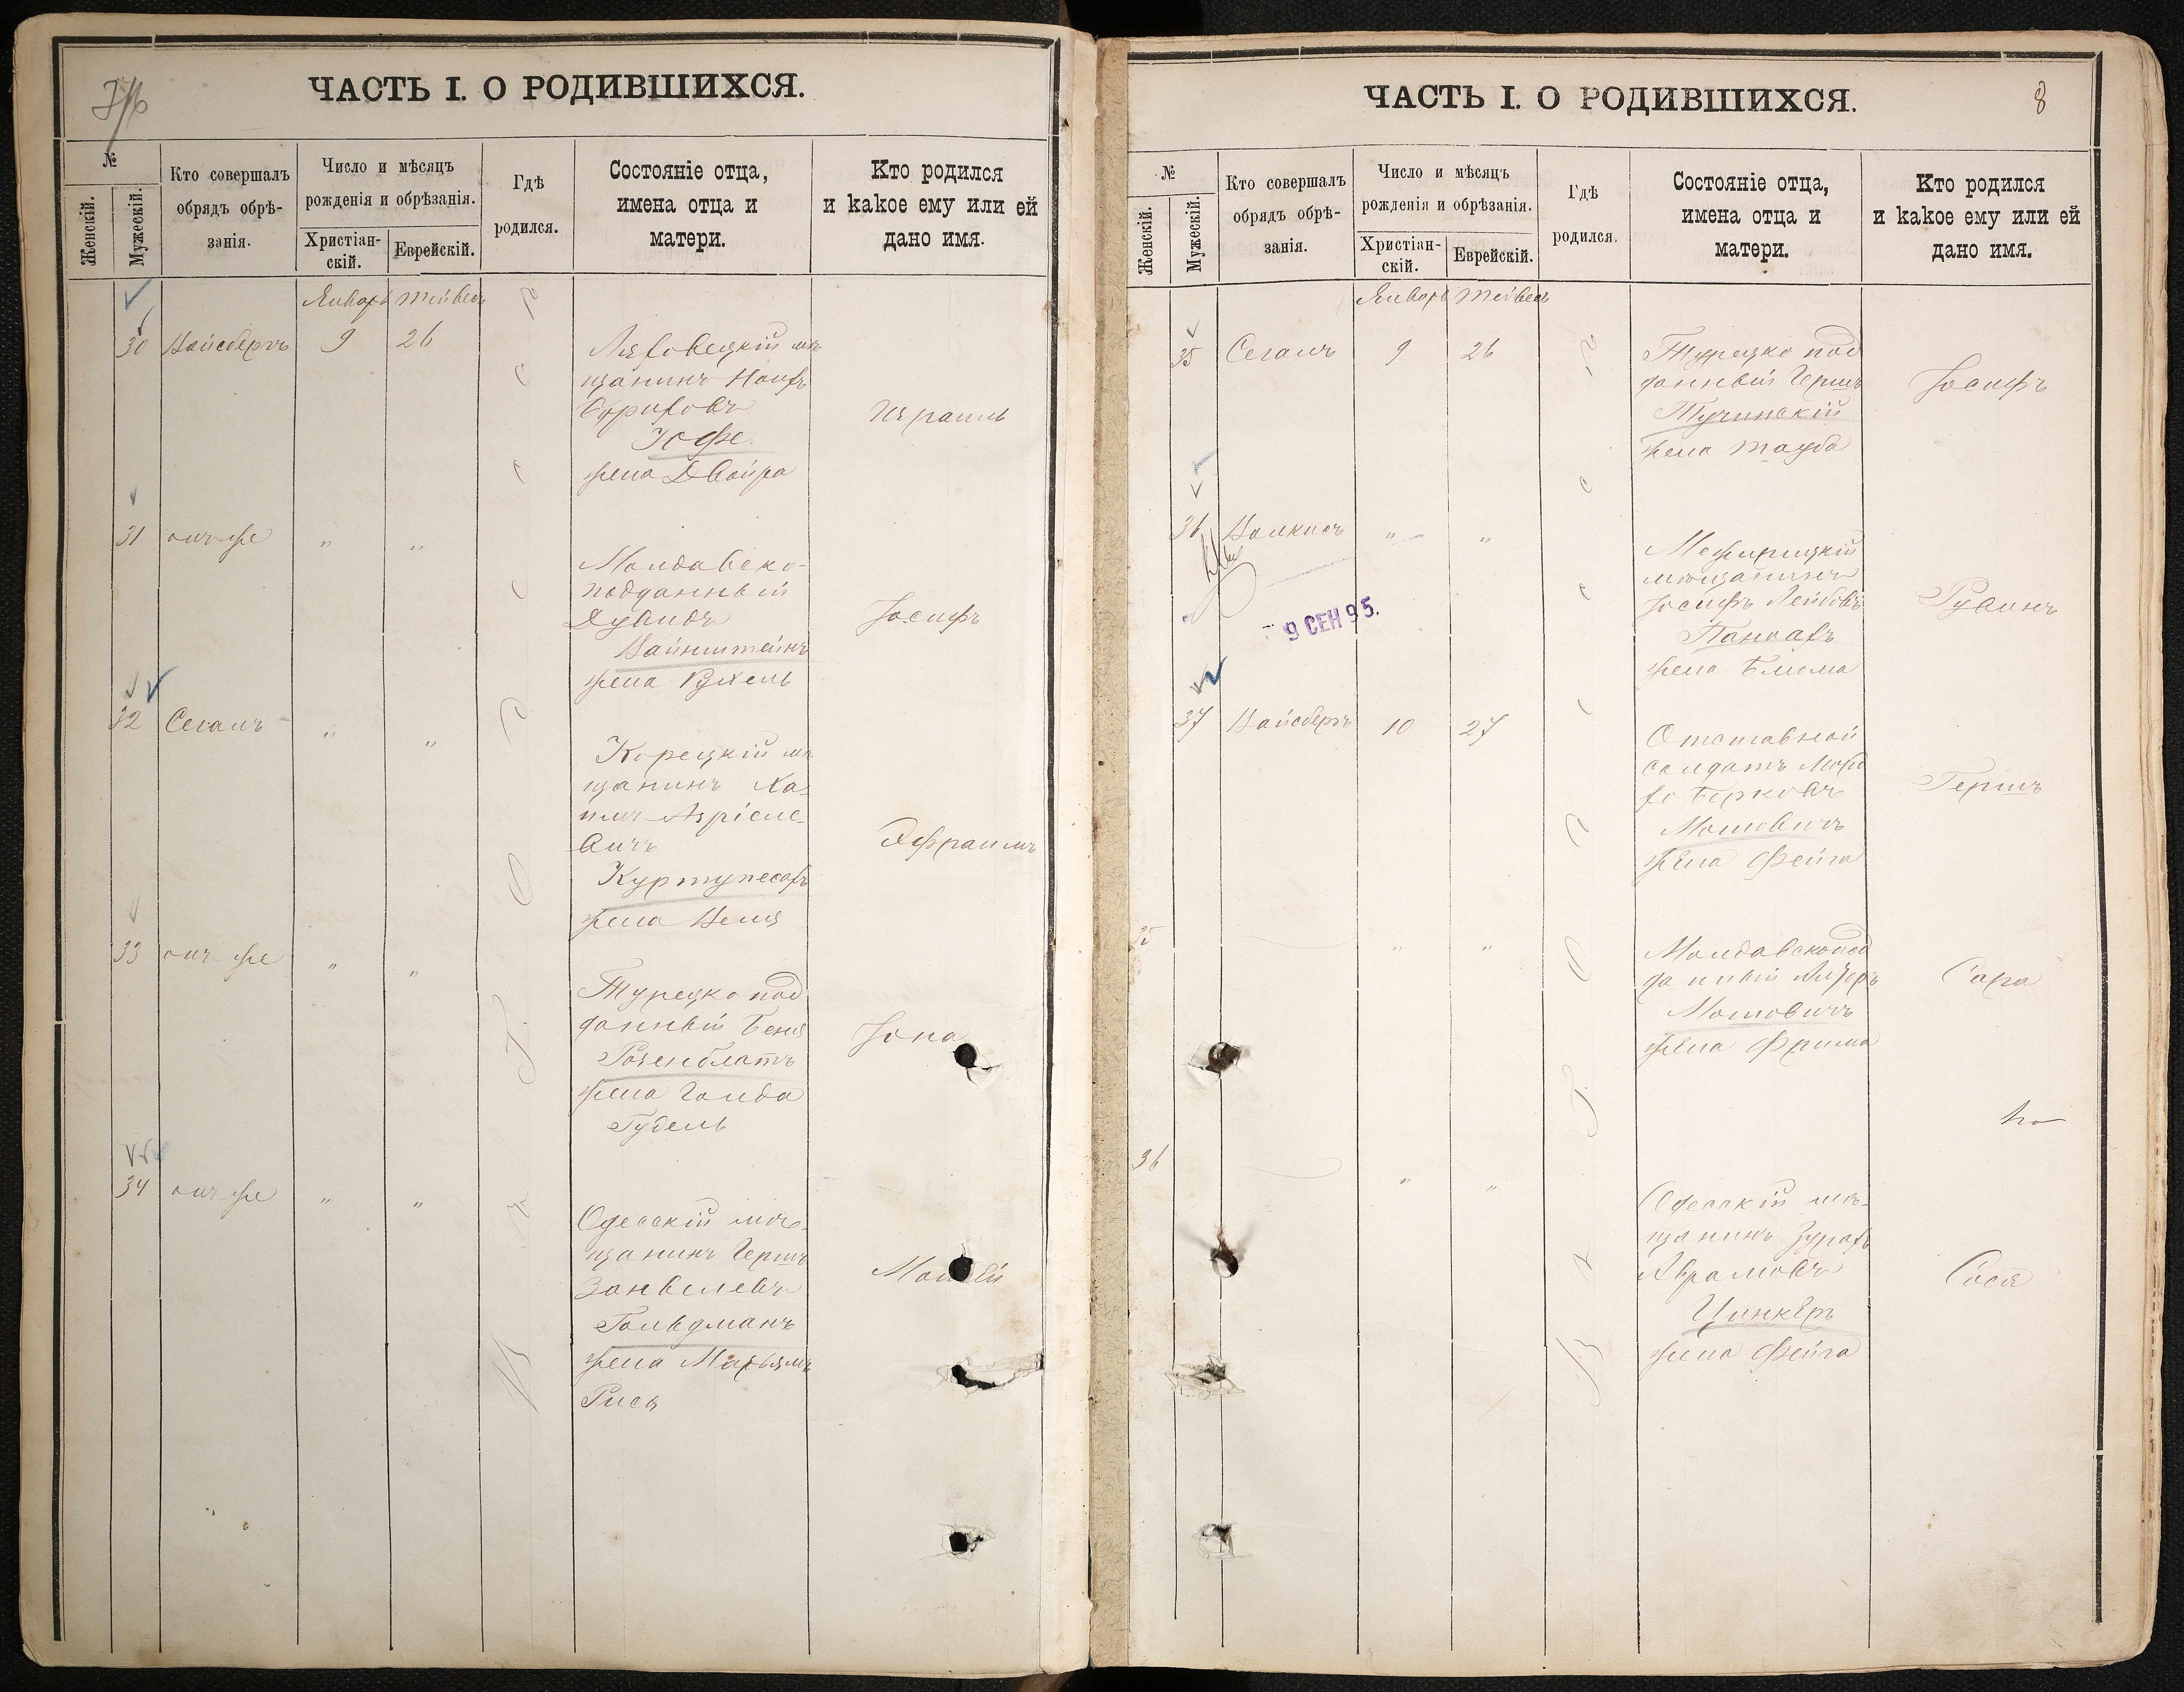 ЧАСТЬ I. О РОДИВШИХСЯ.
№
Женскій.
Мужескій.
Кто совершалъ
обрядъ обрѣ-
занія.
Число и мѣсяцъ
рожденія и обрѣзанія.
Христіан-
скій.
Еврейскій.
Гдѣ
родился.
Состояніе отца,
имена отца и
матери.
Кто родился
и какое ему или ей
дано имя.
Январь Тейвесъ
30 Вайсбергъ 9 26
щанинъ
Іофе
жена Двойра
Израиль
31 онъ же " "
Молдавско-
подданный
Дувидъ
Вайнштейнъ
жена Рухель
Іосифъ
32 Сегалъ " "
Корецкій мѣ
щанинъ Ха
имъ Азріеле
вичъ
жена Веля
Эфраимъ
33 онъ же " "
Турецко под
данный Беня
Розенблатъ
жена Голда
Гудель
Іона
34 онъ же " "
Одесскій мѣ-
щанинъ Гершъ
Занвелевъ
Гольдманъ
жена Марьямъ
Рися
В г. Одессѣ
ЧАСТЬ I. О РОДИВШИХСЯ.
8
№
Женскій.
Мужескій.
Кто совершалъ
обрядъ обрѣ-
занія.
Число и мѣсяцъ
рожденія и обрѣзанія.
Христіан-
скій.
Еврейскій.
Гдѣ
родился.
Состояніе отца,
имена отца и
матери.
Кто родился
и какое ему или ей
дано имя.
Январь Тейвесъ
35 Сегалъ 9 26
Турецко под
данный Гершъ
Тучинскій
жена Тауба
Іосифъ
36 " "
мѣщанинъ
Іосифъ Лейбовъ
жена Блюма
Рувинъ
9 СЕН 95.
37 Вайсбергъ 10 27
Отставной
солдатъ
Берковъ
Мошовичъ
жена Фейга
Гершъ
35 " "
Молдавскопод
данный Лейзеръ
Мошовичъ
жена Фрима
Сара
36 " "
Одесскій мѣ-
щанинъ
Аврамовъ
Цинкеръ
жена Фейга
Сося